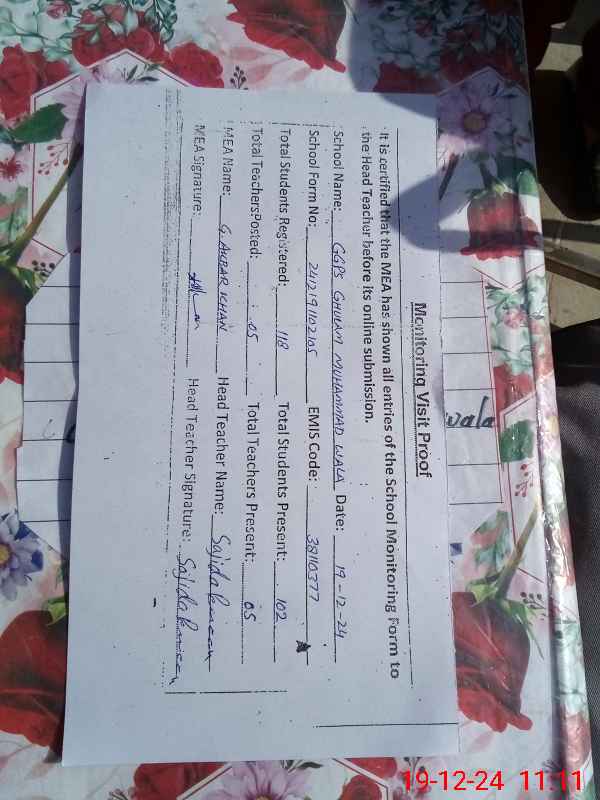 Monitoring Visit Proof
It is certified that the MEA has shown all entries of the School Monitoring Form to
the Head Teacher before its online submission.
School Name: GGPS GHULAM MUHAMMAD WALA Date: 19-12-24
School Form No: 2412191102105 EMIS Code: 38110377
Total Students Registered: 118 Total Students Present: 102
Total TeachersPosted: 05 Total Teachers Present: 05
MEA Name: G. AKBAR KHAN Head Teacher Name: Sajida
MEA Signature: Head Teacher Signature: Sajida
wala
19-12-24 11:11